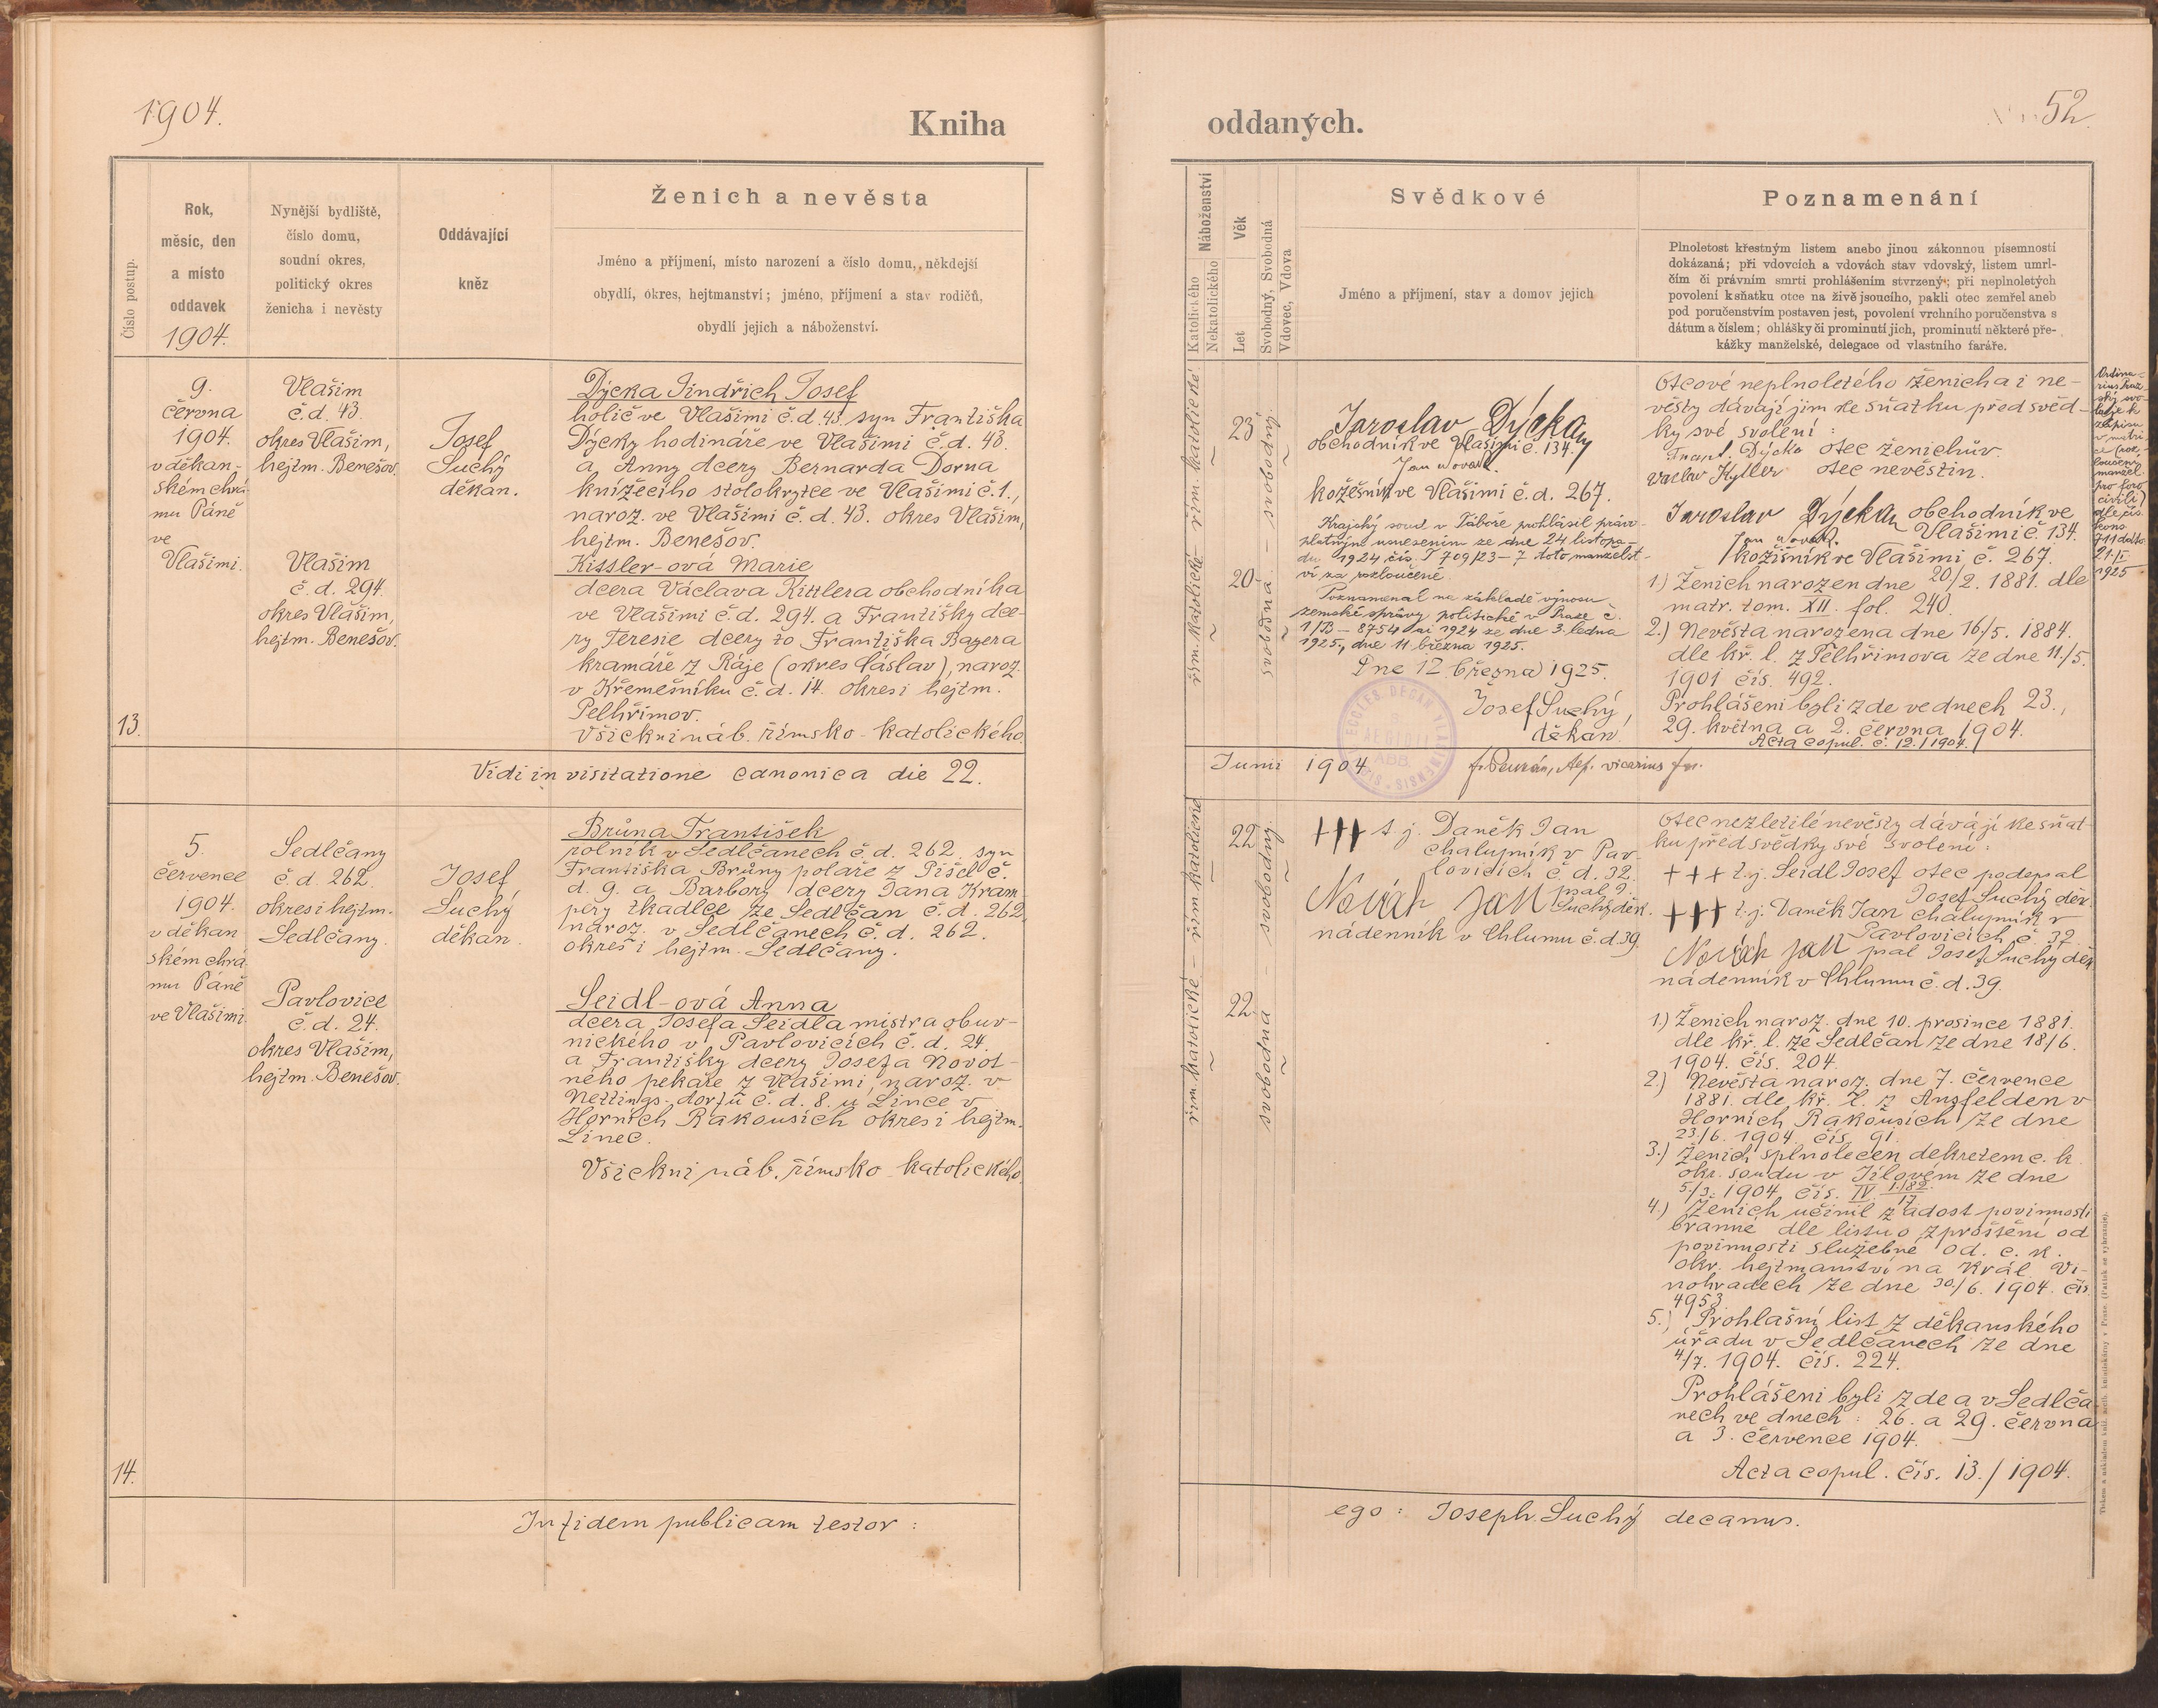 1904.
Kniha
Číslo postup.
Rok,
měsíc, den
a místo
oddavek
1904.
Nynější bydliště,
číslo domu,
soudní okres,
politický okres
ženicha i nevěsty
Oddávající
kněz
Ženich a nevěsta
Jméno a příjmení, místo narození a číslo domu, někdejší
obydlí, okres, hejtmanství; jméno, příjmení a stav rodičů,
obydlí jejich a náboženství.
13.
9.
června
1904.
v děkan-
ském chrá-
mu Páně
ve
Vlašimi.
Vlašim
č.d. 43.
okres Vlašim,
hejtm. Benešov.
Vlašim
č.d. 294.
okres Vlašim,
hejtm. Benešov.
Josef
Suchý
děkan.
Dýcka Jindřich Josef
holič ve Vlašimi č.d. 43. syn Františka
Dýcky hodináře ve Vlašimi č.d. 43.
a Anny dcery Bernarda Dorna
knížecího stolokrytce ve Vlašimi č. 1.,
naroz. ve Vlašimi č.d. 43. okres Vlašim,
hejtm. Benešov.
Kittler-ová Marie
dcera Václava Kittlera obchodníka
ve Vlašimi č.d. 294. a Františky dce-
ry Teresie dcery to Františka Bayera
kramáře z Ráje (okres Čáslav), naroz.
v Křemešníku č.d. 14. okres i hejtm.
Pelhřimov.
Všickni náb. římsko-katolického.
Vidi in visitatione canonica die 22.
14.
5.
července
1904.
v děkan
ském chrá-
mu Páně
ve Vlašimi.
Sedlčany
č.d. 262.
okres i hejtm.
Sedlčany.
Pavlovice
č.d. 24.
okres Vlašim,
hejtm. Benešov.
Josef
Suchý
děkan.
Brůna František
rolník v Sedlčanech č.d. 262. syn
Františka Brůny poláře z Pišel č.
d. 9. a Barbory dcery Jana Kram-
pery tkadlce ze Sedlčan č.d. 262
naroz. v Sedlčanech č.d. 262.
okres i hejtm. Sedlčany.
Seidl-ová Anna
dcera Josefa Seidla mistra obuv-
nického v Pavlovicích č.d. 24.
a Františky dcery Josefa Novot-
ného pekaře z Vlašimi, naroz. v
Nettings-dorfu č.d. 8. u Lince v
Horních Rakousích okres i hejtm.
Linec.
Všickni náb. římsko-katolického.
In fidem publicam testor:
oddaných.
52.
Náboženství
Katolického
Nekatolického
Věk
Let
Svobodný, Svobodná
Vdovec, Vdova
Svědkové
Jméno a příjmení, stav a domov jejich
Poznamenání
Plnoletost křestným listem anebo jinou zákonnou písemností
dokázaná; při vdovcích a vdovách stav vdovský, listem umrl-
čím či právním smrti prohlášením stvrzený; při neplnoletých
povolení k sňatku otce na živě jsoucího, pakli otec zemřel aneb
pod poručenstvím postaven jest, povolení vrchního poručenstva s
dátum a číslem; ohlášky či prominutí jich, prominutí některé pře-
kážky manželské, delegace od vlastního faráře.
řím. katolické – řím. katolické
23
20
svobodná – svobodný.
Jaroslav Dýcka
obchodník ve Vlašimi č. 134.
Jan Novák.
kožešník ve Vlašimi č.d. 267.
Krajský soud v Táboře prohlásil právo-
platným usnesením ze dne 24 listopa-
du 1924 čís. T 709/23–7 toto manželst-
ví za rozloučené.
Poznamenal na základě výnosu
zemské správy politické v Praze č.
1/B – 8754 ai 1924 ze dne 3. ledna
1925., dne 11 března 1925.
Dne 12. března 1925.
Josef Suchý,
děkan.
Otcové neplnoletého ženicha i ne-
věsty dávají jim ke sňatku před svěd-
ky své svolení:
Frant. Dýcka otec ženichův.
Václav Kytler otec nevěstin.
Jaroslav Dýcka obchodník ve
Vlašimi č. 134.
Jan Novák.
kožišník ve Vlašimi č. 267.
1.) Ženich narozen dne 20/2. 1881. dle
matr. tom. XII. fol. 240.
2.) Nevěsta narozena dne 16/5. 1884.
dle kř. l. z Pelhřimova ze dne 11./5.
1901 čís. 492.
Prohlášeni byli zde ve dnech 23.,
29. května a 2. června 1904.
Acta copul. č. 12./1904.
Ordina-
rius
svo-
luje k
zápisu
v matri-
ce (roz-
loučení
manžel.
pro foro
civili)
dle čís.
911
21./I
1925
Junii 1904.
vicarius
řím. katolické – řím. katolické
22
22
svobodná – svobodný.
+++ t.j. Daněk Jan
chalupník v Pav-
lovicích č.d. 32.
psal J.
Suchý děk.
Novák Jan
nádenník v Chlumu č.d. 39.
Otec nezletilé nevěsty dávájí ke sňat-
ku před svědky své svolení:
+++ t.j. Seidl Josef otec podepsal
Josef Suchý děk.
+++ t.j. Daněk Jan chalupník v
Pavlovicích č. 32.
Novák Jan psal Josef Suchý děk.
nádenník v Chlumu č.d. 39.
1.) Ženich naroz. dne 10. prosince 1881.
dle kř. l. ze Sedlčan ze dne 18/6.
1904. čís. 204.
2.) Nevěsta naroz. dne 7. července
1881. dle kř. l. z Ansfelden v
Horních Rakousích ze dne
23/6. 1904. čís. 91.
3.) Ženich splnoletěn dekretem c.k.
okr. soudu v Jílovém ze dne
5./3. 1904. čís. IV. 1./82. 17
4.) Ženich učinil zadost povinnosti
branné dle listu o zproštění od
povinnosti služebné od. c. k.
okr. hejtmanství na Král. Vi-
nohradech ze dne 30./6. 1904. čís.
4953.
5.) Prohlašní list z děkanského
úřadu v Sedlčanech ze dne
4/7. 1904. čís. 224.
Prohlášeni byli zde a v Sedlča-
nech ve dnech: 26. a 29. června
a 3. července 1904.
Acta copul. čís. 13./1904.
ego: Joseph Suchý decanus.